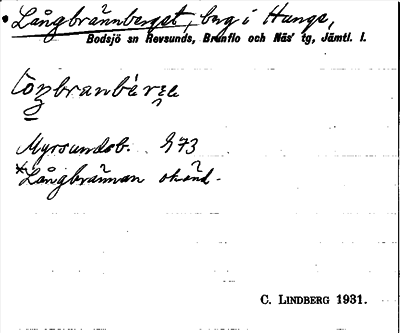 Långbrännberget, berg i Hunge,
Bodsjö sn Revsunds, Brunflo och Näs' tg, Jämtl. l.
Myrsundsb. 973
*Långbrännan okänd.
C. LINDBERG 1931.